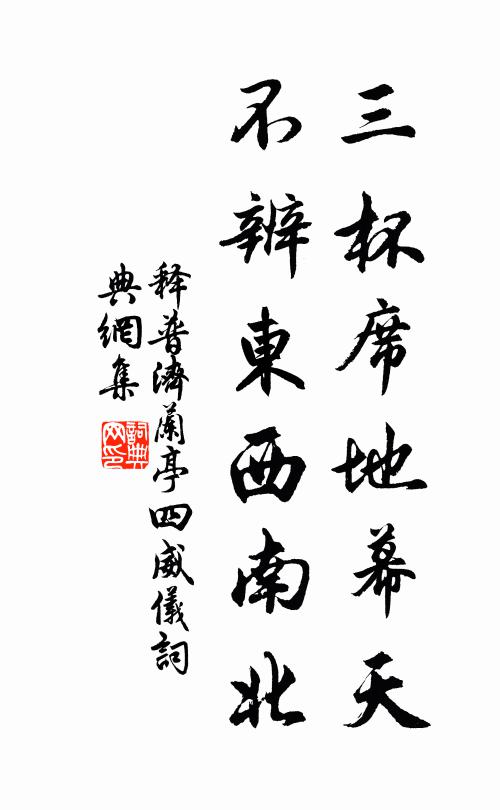 三杯席地幕天
不辨東西南北
释普濟蘭亭四威儀詞
典網集
詞典
网印